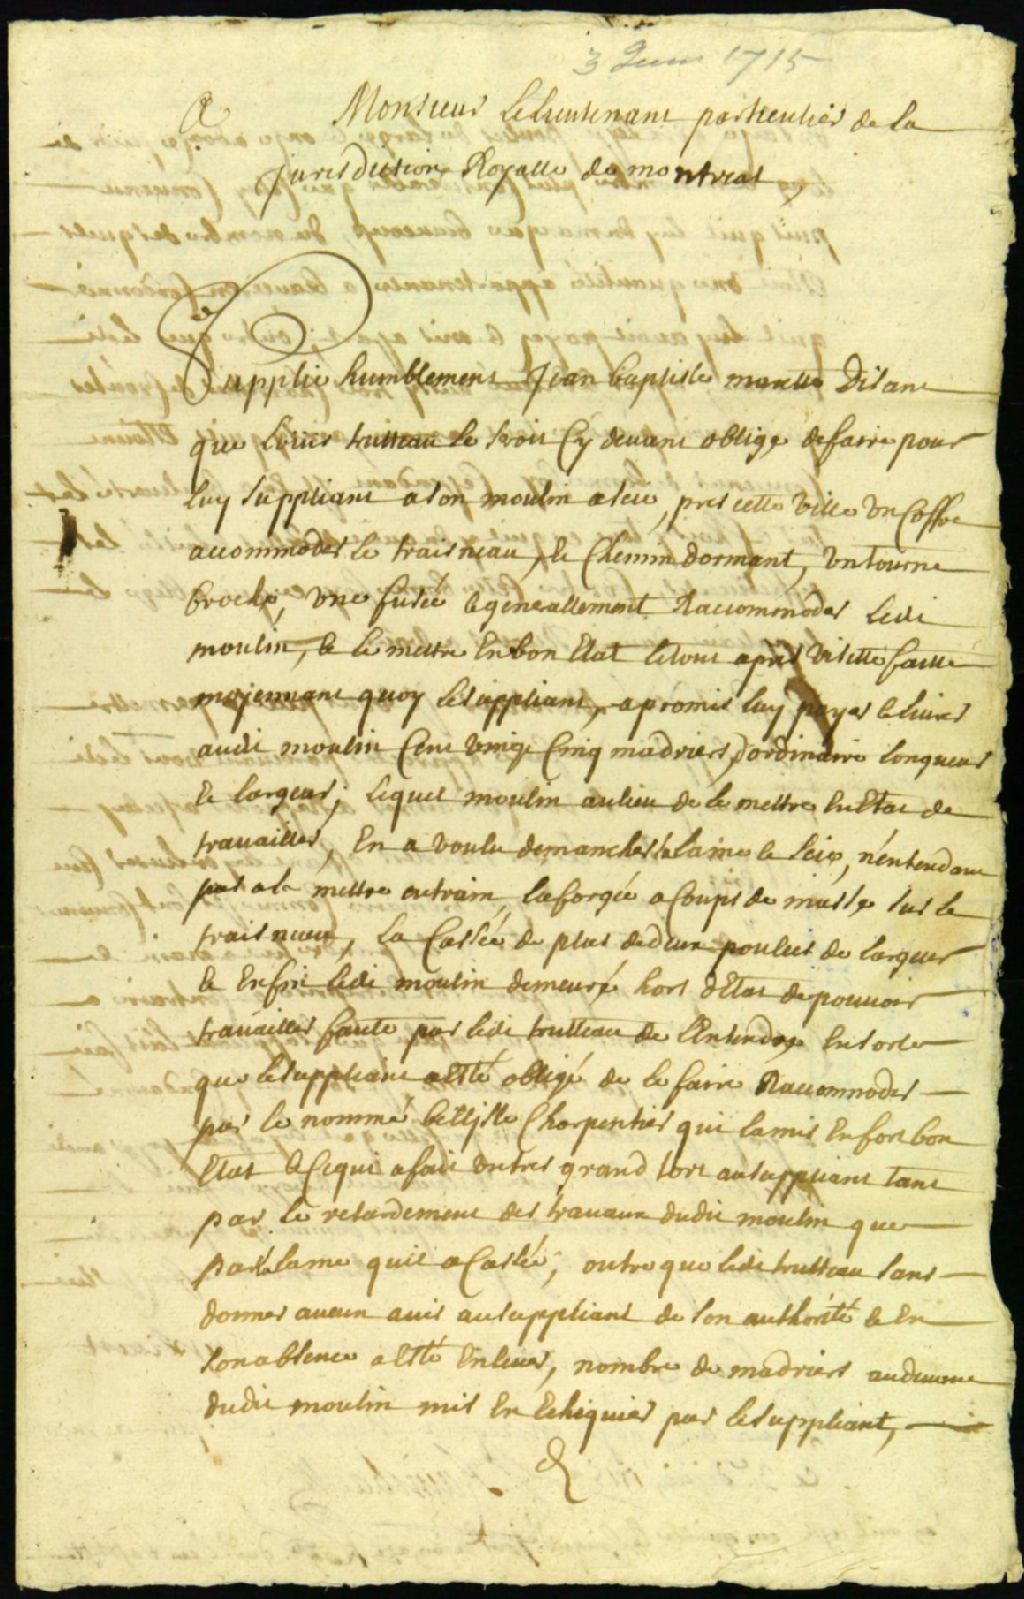 3 Juin 1715
A Monsieur Le Lieutenant particulier de la
Jurisdiction Royalle de montreal,
Supplie humblement Jean baptiste Disant
que Louis trutteau se seroit Cy devant obligé de faire pour
luy Suppliant a son moulin a scie, pres cette ville un Coffre
accommoder le traisneau, le Chemin dormant, un tourne
broche, une fusée & generallement Raccommoder Ledit
moulin, & le mettre En bon Etat le tout apres visitte faitte
moyennant quoy le suppliant, a promis luy payer & livrer
audit moulin Cent vingt Cinq madriers, d'ordinaire longueur
& largeur, lequel moulin au lieu de le mettre En Etat de
travailler, En a voulu demancher la lame & scie, n'entendant
pas a la mettre en train, la forgée a Coups de masse sur le
traisneau, la Cassée de plus de deux poulces de largeur
& Enfin ledit moulin demeuré hors d'Etat de pouvoir
travailler faute par ledit trutteau de L'Entendre En sorte
que le suppliant a Esté obligé de le faire Raccommoder
par le nommé Charpentier qui l'a mis En fort bon
Etat & Ce qui a fait un tres grand tort au suppliant tant
par le retardement des travaux dudit moulin que
par la lame quil a Cassée, outre que ledit trutteau sans
donner aucun avis au suppliant de son authorité & En
son absence a Esté Enlever, nombre de madriers au devant
dudit moulin mis En Echiquier par le suppliant,